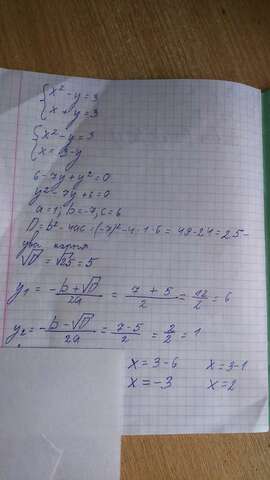 {x² - y = 3
{x + y = 3
{x² - y = 3
{x = 3 - y
6 - 7y + y² = 0
y² - 7y + 6 = 0
a = 1; b = -7; c = 6
D = b² - 4ac = (-7)² - 4 · 1 · 6 = 49 - 24 = 25 -
два корня
√D = √25 = 5
y₁ = -b + √D / 2a = 7 + 5 / 2 = 12 / 2 = 6
y₂ = -b - √D / 2a = 7 - 5 / 2 = 2 / 2 = 1
x = 3 - 6 x = 3 - 1
x = -3 x = 2